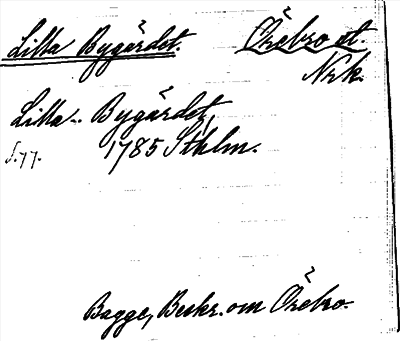 Lilla Bygärdet. Örebro st.
Nrk.
Lilla Bygärdet,
s.77. 1785 Sthlm.
Bagge, Beskr. om Örebro.